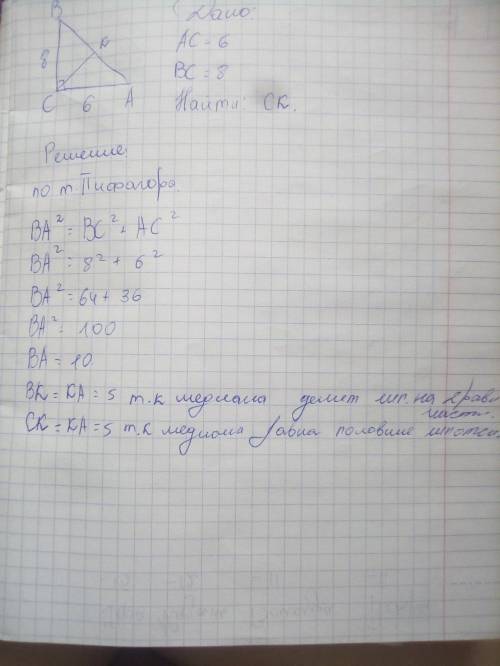 B
Дано:
К
AC = 6
8
BC = 8
C 6 A
Найти: СК.
Решение:
по т Пифагора.
BA² = BC² + AC²
BA² = 8² + 6²
BA² = 64 + 36
BA² = 100
BA = 10.
BK = KA = 5 т.к медиана делит гип. на 2 равн
части.
CK = KA = 5 т.к медиана равна половине гипотен.